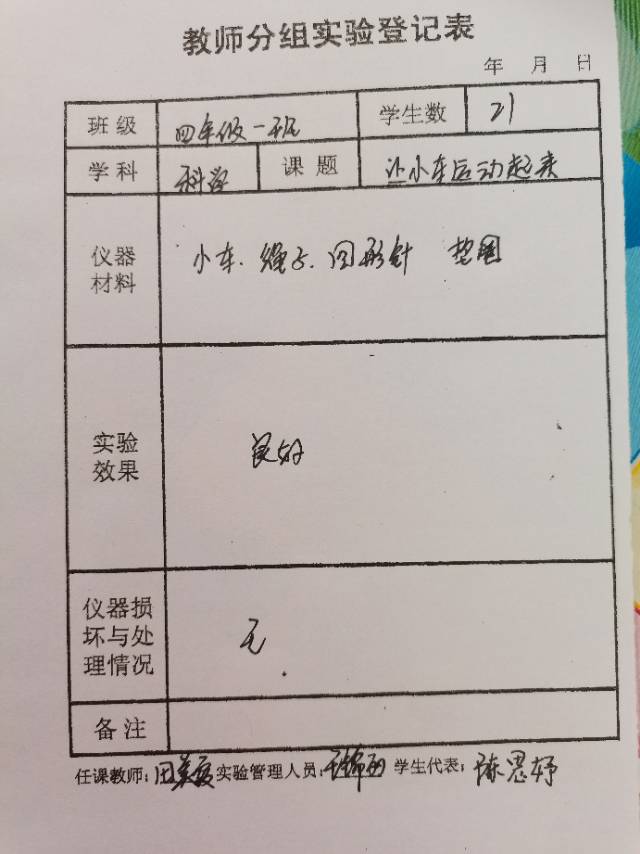 教师分组实验登记表
年 月 日
班级 四年级一班 学生数 21
学科 科学 课题 让小车运动起来
仪器材料 小车、绳子、回形针 垫圈
实验效果 良好
仪器损坏与处理情况 无
备注
任课教师: 实验管理人员: 学生代表: 陈思妤